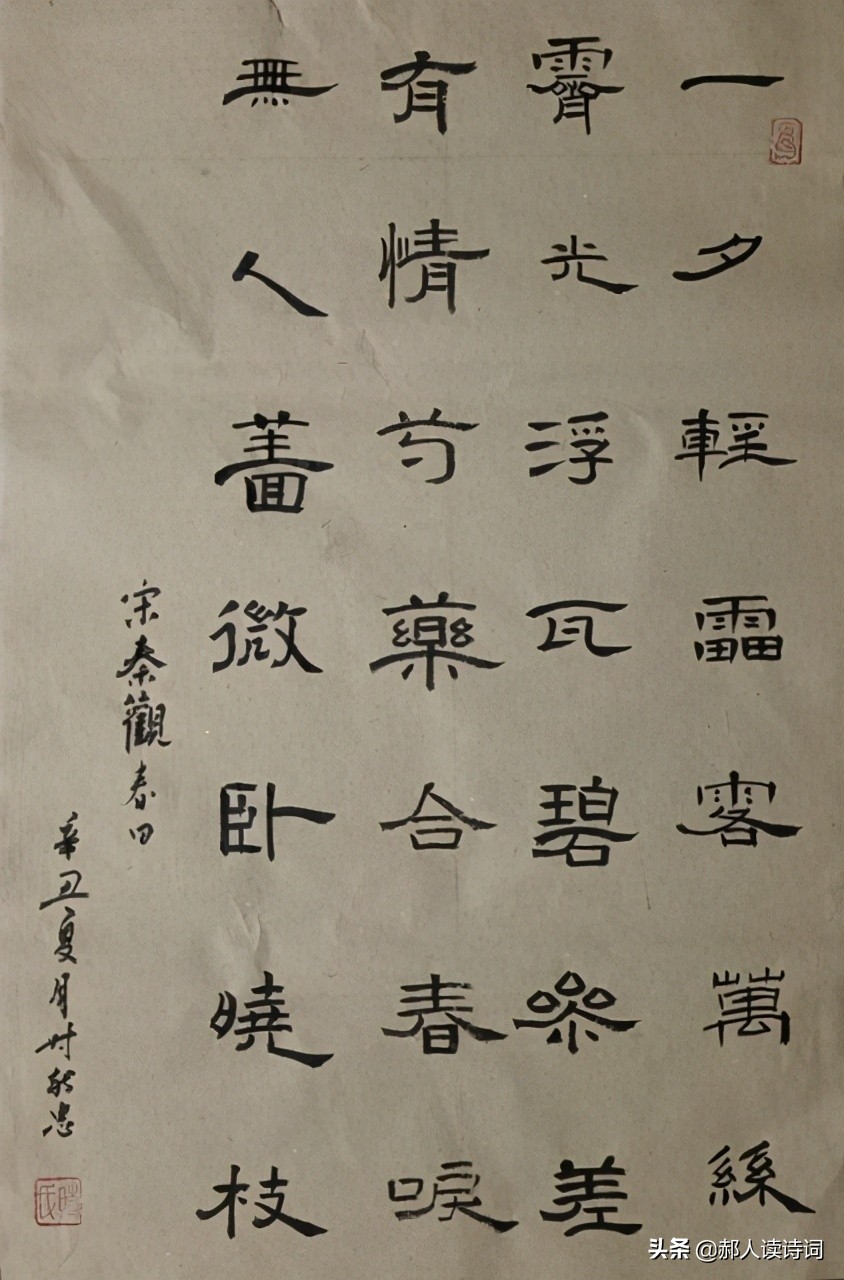 一夕輕雷落萬絲
霽光浮瓦碧參差
有情芍藥合春唳
無人薔微卧曉枝
宋秦觀春日
辛丑夏月时忠
頭条 @郝人读诗词